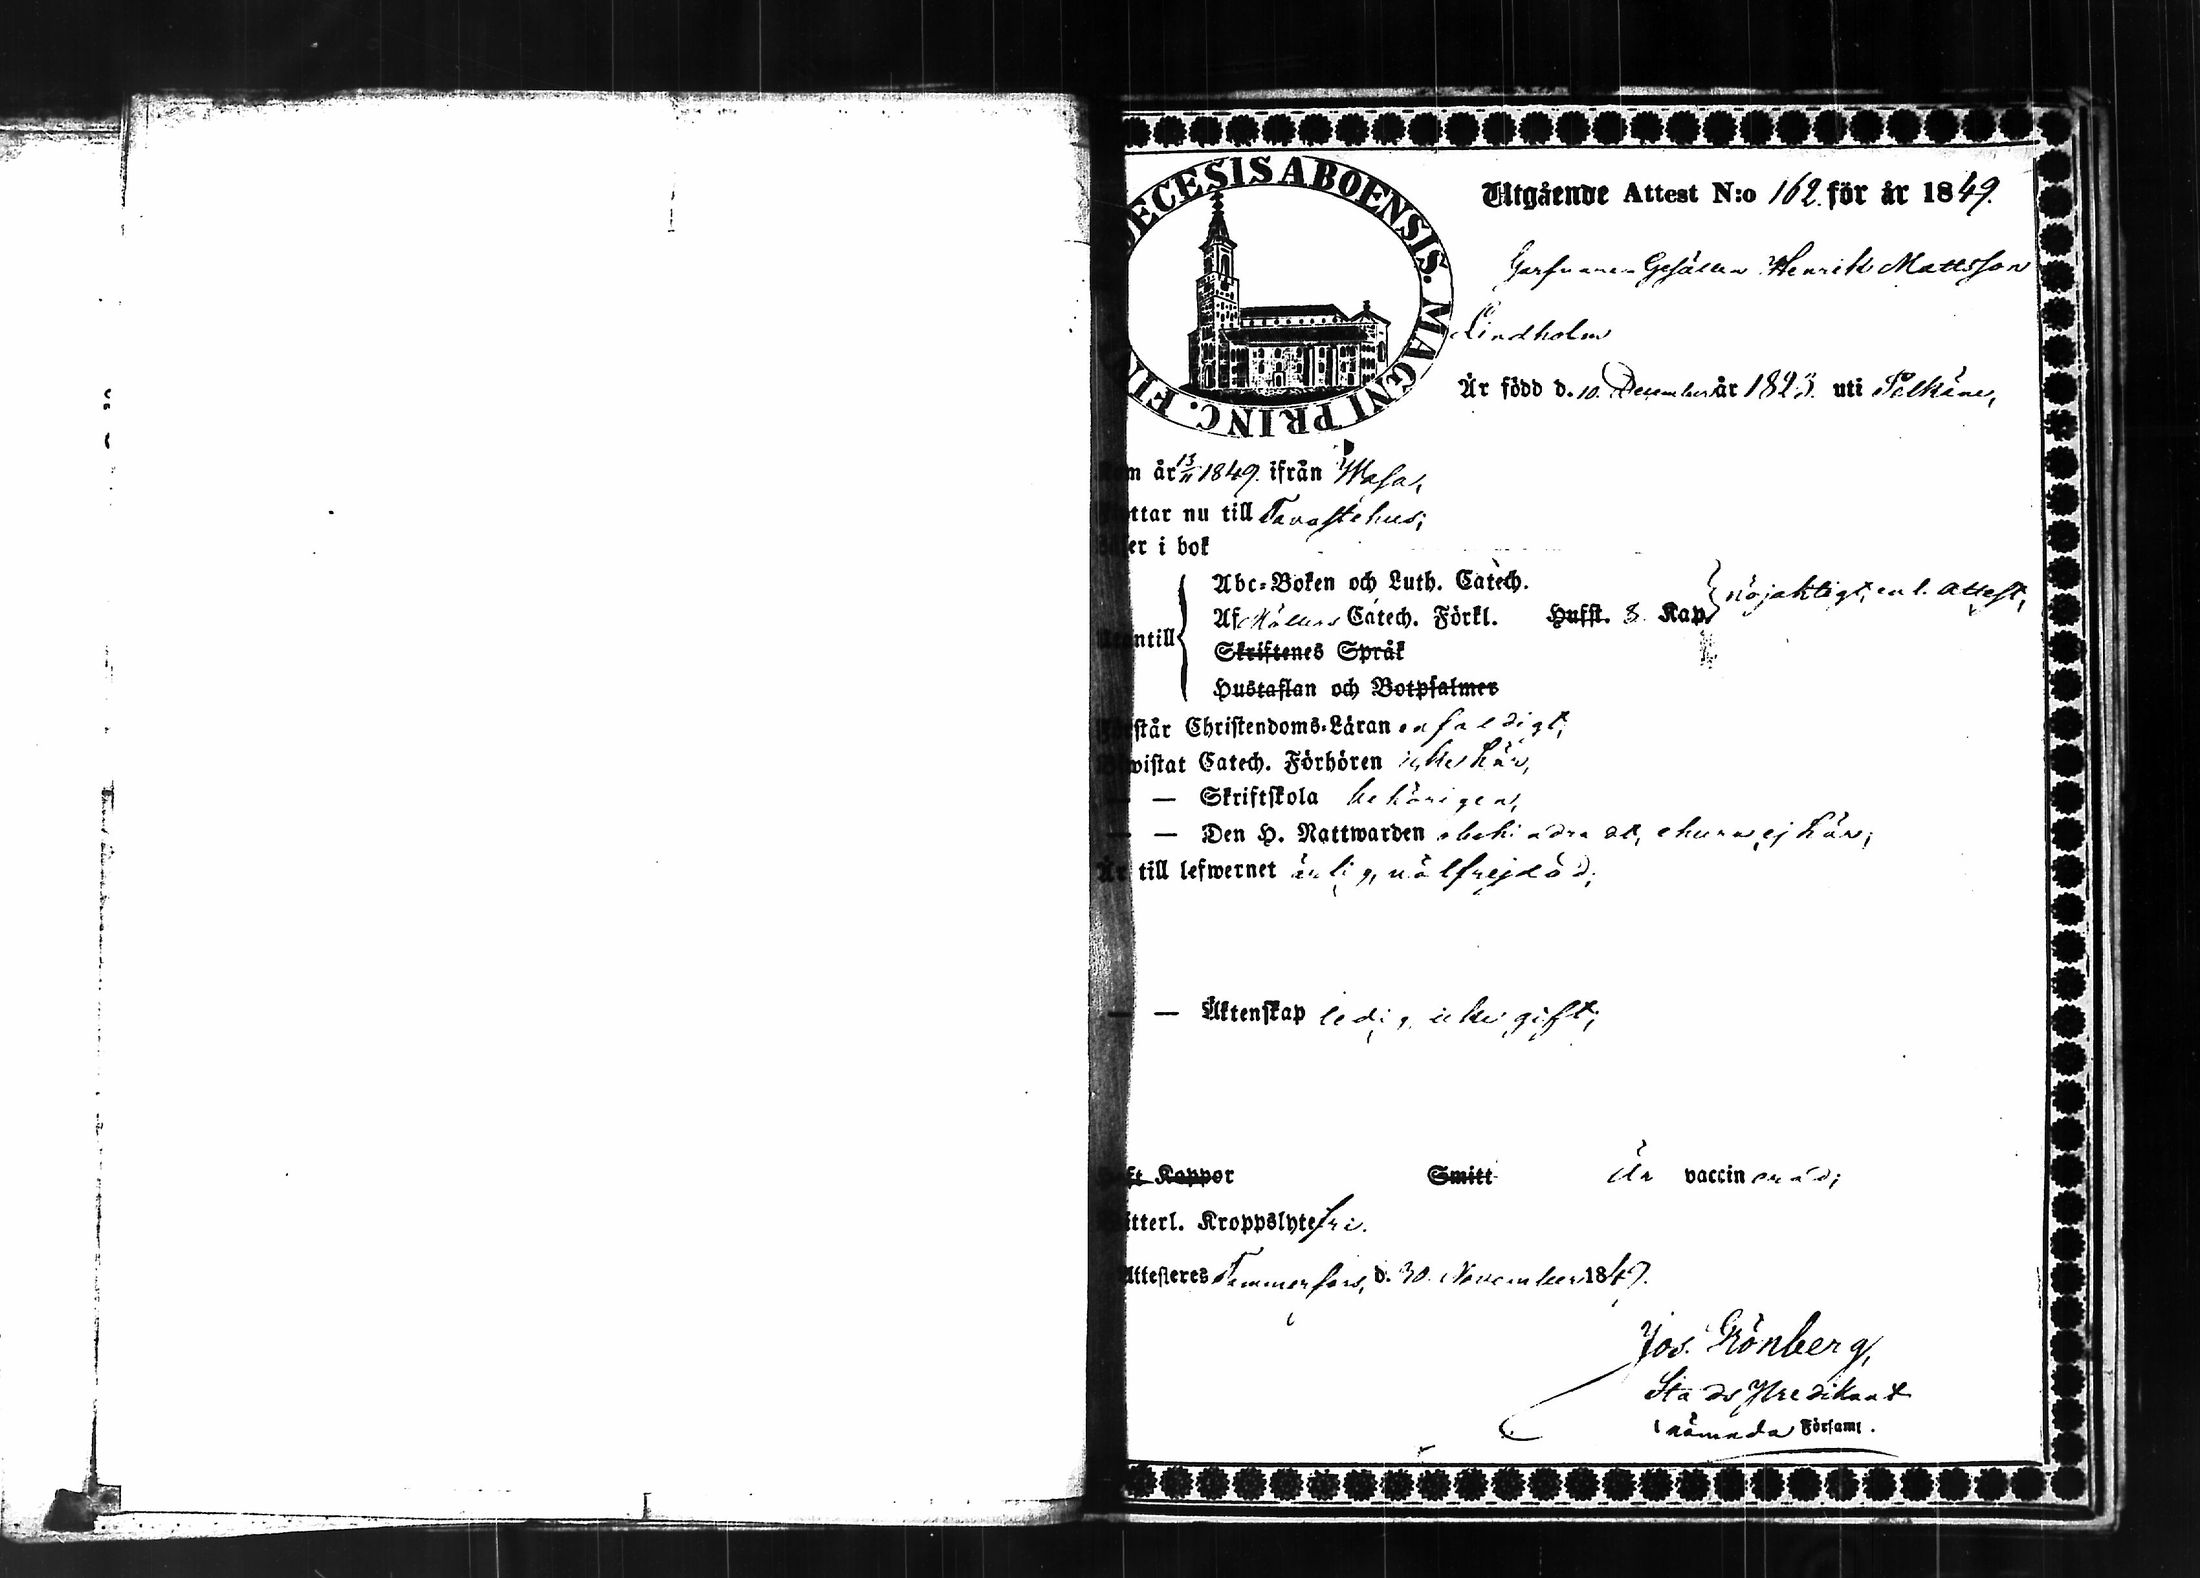 DECESIS ABOENSIS. MAGNI PRINC. FIN
Utgående Attest N:o 162. för år 1849.
Garfvaren Gesällen Henrik Mattsson
Lindholm
Är född d. 10. December år 1823. uti Pelkäne,
år 13/11 1849. ifrån Wasa,
ttar nu till Tavastehus;
er i bok
Abc-Boken och Luth. Catech.
Af Möllers Catech. Förkl. Husst. 8. Kap. nöjaktigt, enl. attest,
ntill
Skriftenes Språk
Hustaflan och Botpsalmer
står Christendoms-Läran enfaldigt;
wistat Catech. Förhören icke här,
— — Skriftskola behörigen,
— — Den H. Nattwarden obehindradt, ehuru ej här;
Är till lefwernet ärlig, wälfrejdad;
— — Äktenskap ledig, icke gift;
ft Kappor Smitt Är vaccinerad;
itterl. Kroppslyte fri.
Attesteres Tammerfors, d. 30. November 1849.
Jos. Grönberg,
Stads Predikant
i nämnda Församl.